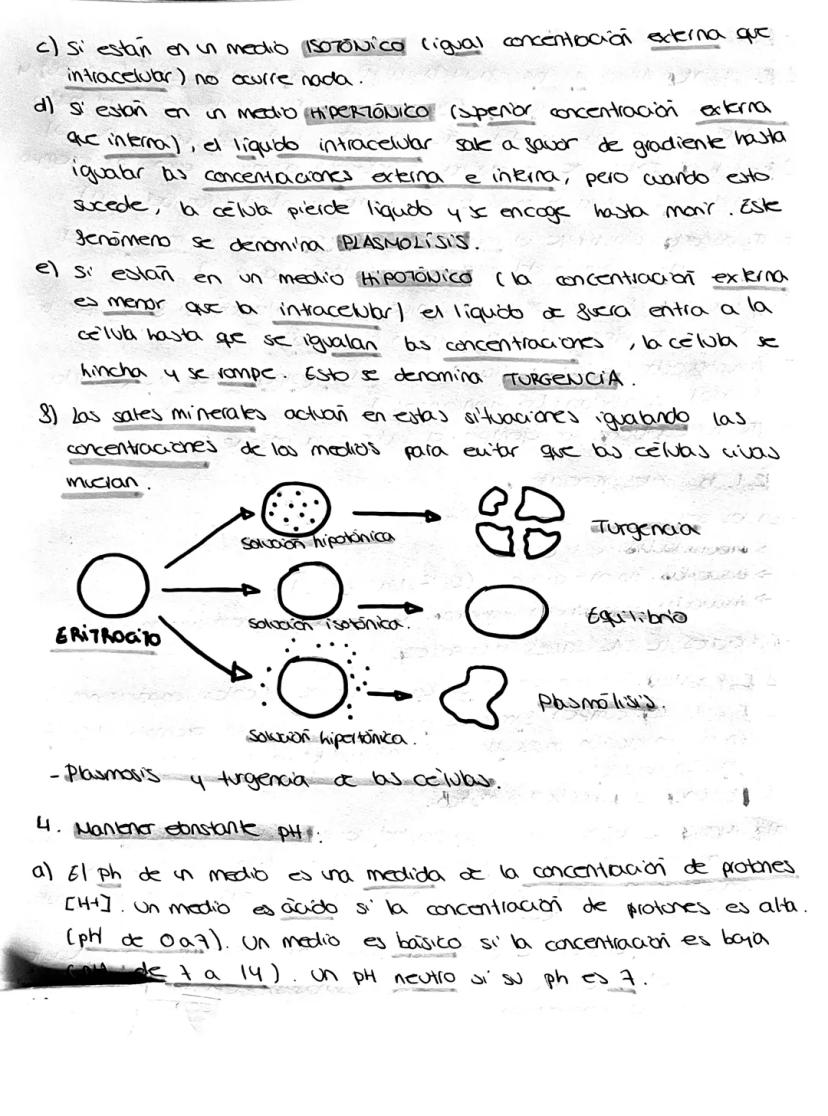 c) Si están en un medio ISOTÓNICO (igual concentración externa que
intracelular) no ocurre nada.
d) Si están en un medio HIPERTÓNICO (superior concentración externa
que interna), el líquido intracelular sale a favor de gradiente hasta
igualar las concentraciones externa e interna, pero cuando esto
sucede, la célula pierde líquido y se encoge hasta morir. Este
fenómeno se denomina PLASMOLISIS.
e) Si están en un medio HIPOTÓNICO (la concentración externa
es menor que la intracelular) el líquido de fuera entra a la
célula hasta que se igualan las concentraciones, la célula se
hincha y se rompe. Esto se denomina TURGENCIA.
f) Las sales minerales actúan en estas situaciones igualando las
concentraciones de los medios para evitar que las células vivas
mueran.
solución hipotónica
Turgencia
solución isotónica.
Equilibrio
ERITROCITO
Plasmólisis.
solución hipertónica.
- Plasmosis y turgencia de las células.
4. Mantener constante pH.
a) El ph de un medio es una medida de la concentración de protones
[H+]. Un medio es ácido si la concentración de protones es alta.
(pH de 0 a 7). Un medio es básico si la concentración es baja
de 7 a 14). Un pH neutro si su ph es 7.